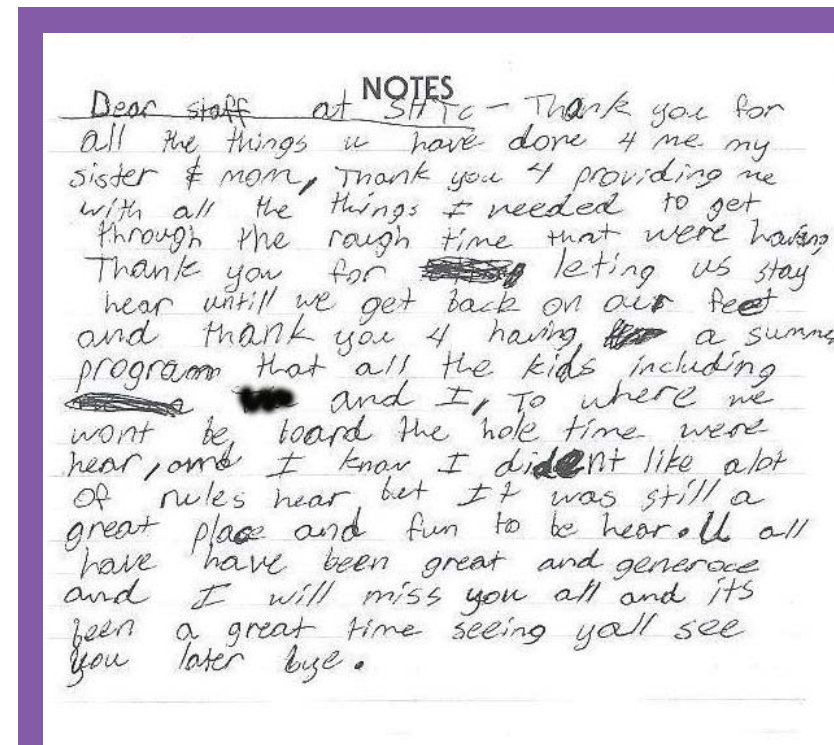 NOTES
Dear staff at SHTC - Thank you for
all the things u have done 4 me my
sister & mom, Thank you 4 providing me
with all the things I needed to get
through the rough time that were having
Thank you for leting us stay
hear untill we get back on our feet
and thank you 4 having a summe
program that all the kids including
and I, To where we
wont be board the hole time were
hear, and I know I dident like alot
of rules hear but It was still a
great place and fun to be hear. U all
have have been great and generoce
and I will miss you all and its
been a great time seeing yall see
you later bye.